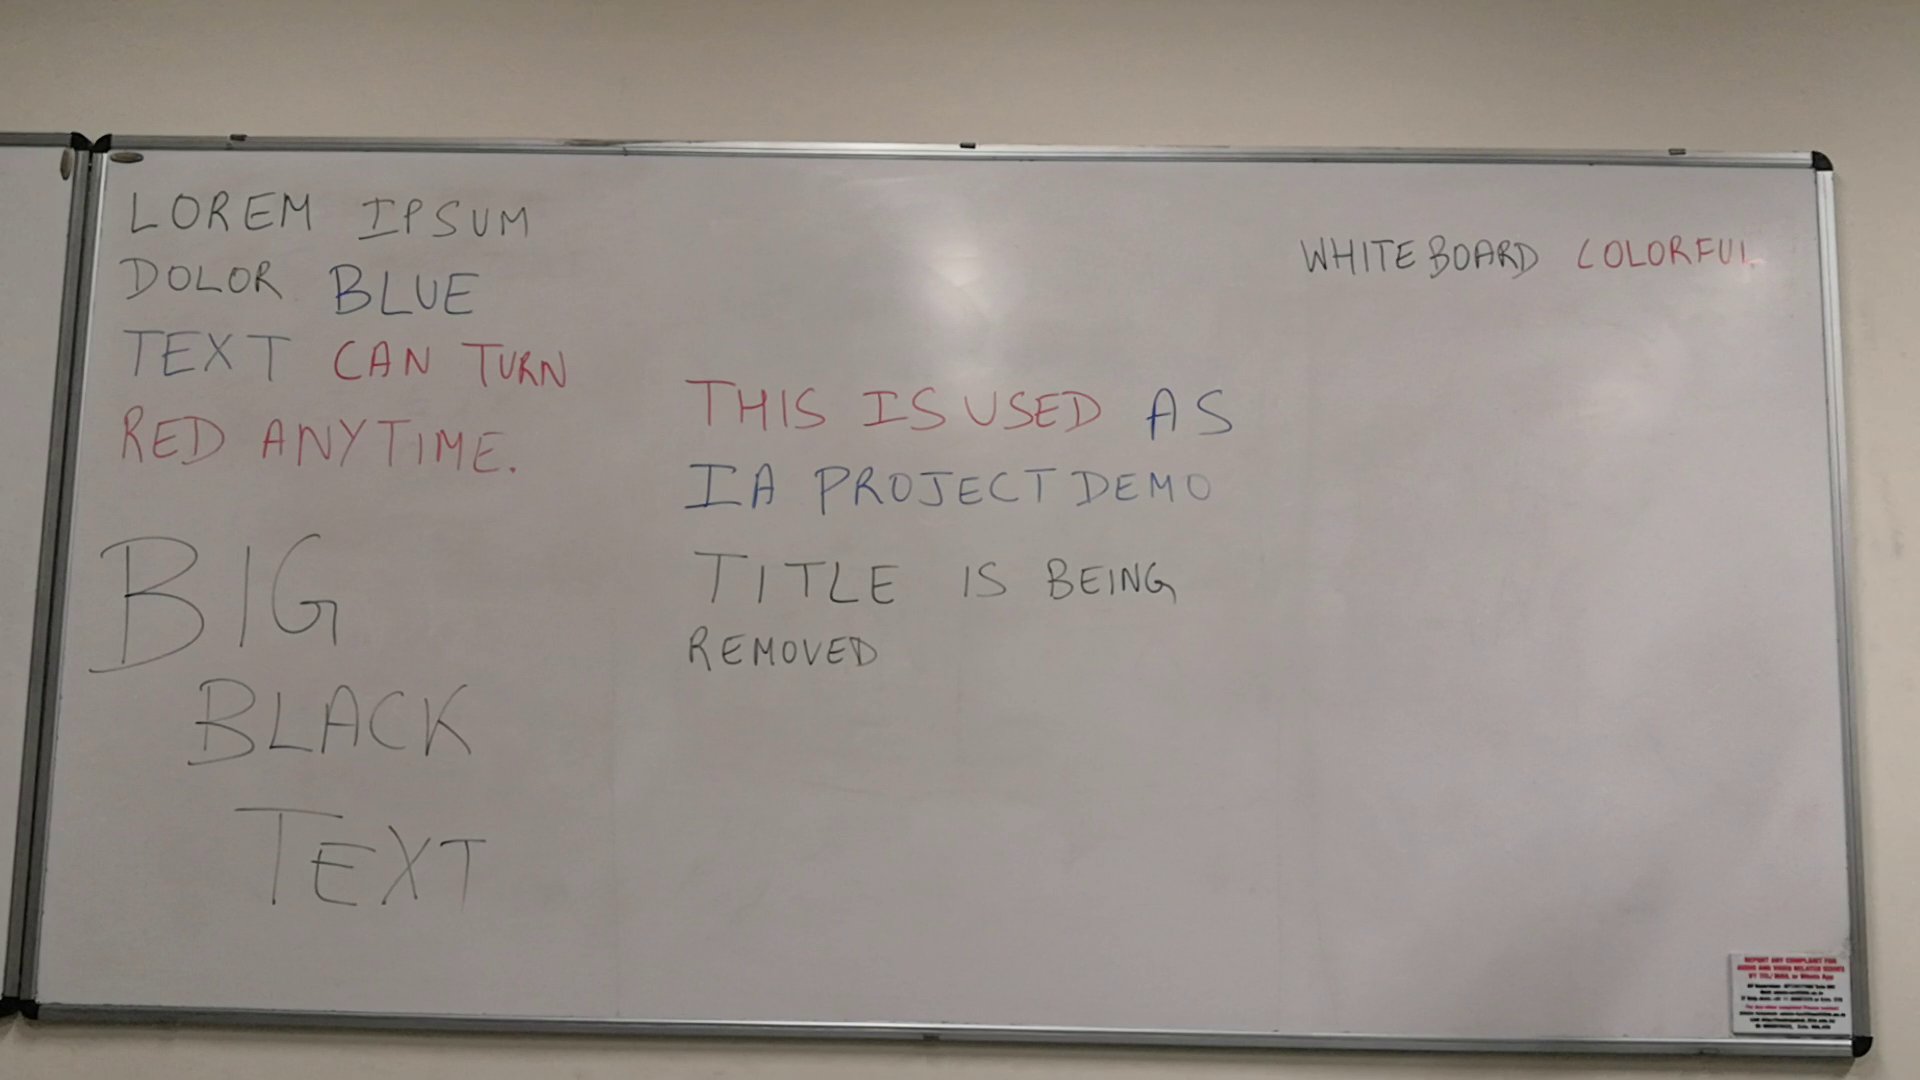 LOREM IPSUM
DOLOR BLUE
TEXT CAN TURN
RED ANYTIME.
BIG
BLACK
TEXT
THIS IS USED AS
IA PROJECT DEMO
TITLE IS BEING
REMOVED
WHITEBOARD COLORFUL
REPORT ANY COMPLAINT FOR
AUDIO AND VIDEO RELATED ISSUES